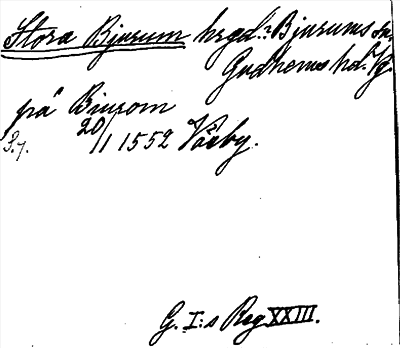 Stora Bjurum hrgd. i Bjurums sn.
Gudhems hd. Vg.
på Biurom
20/1 1552 Våxby.
G. I:s Reg XXIII.